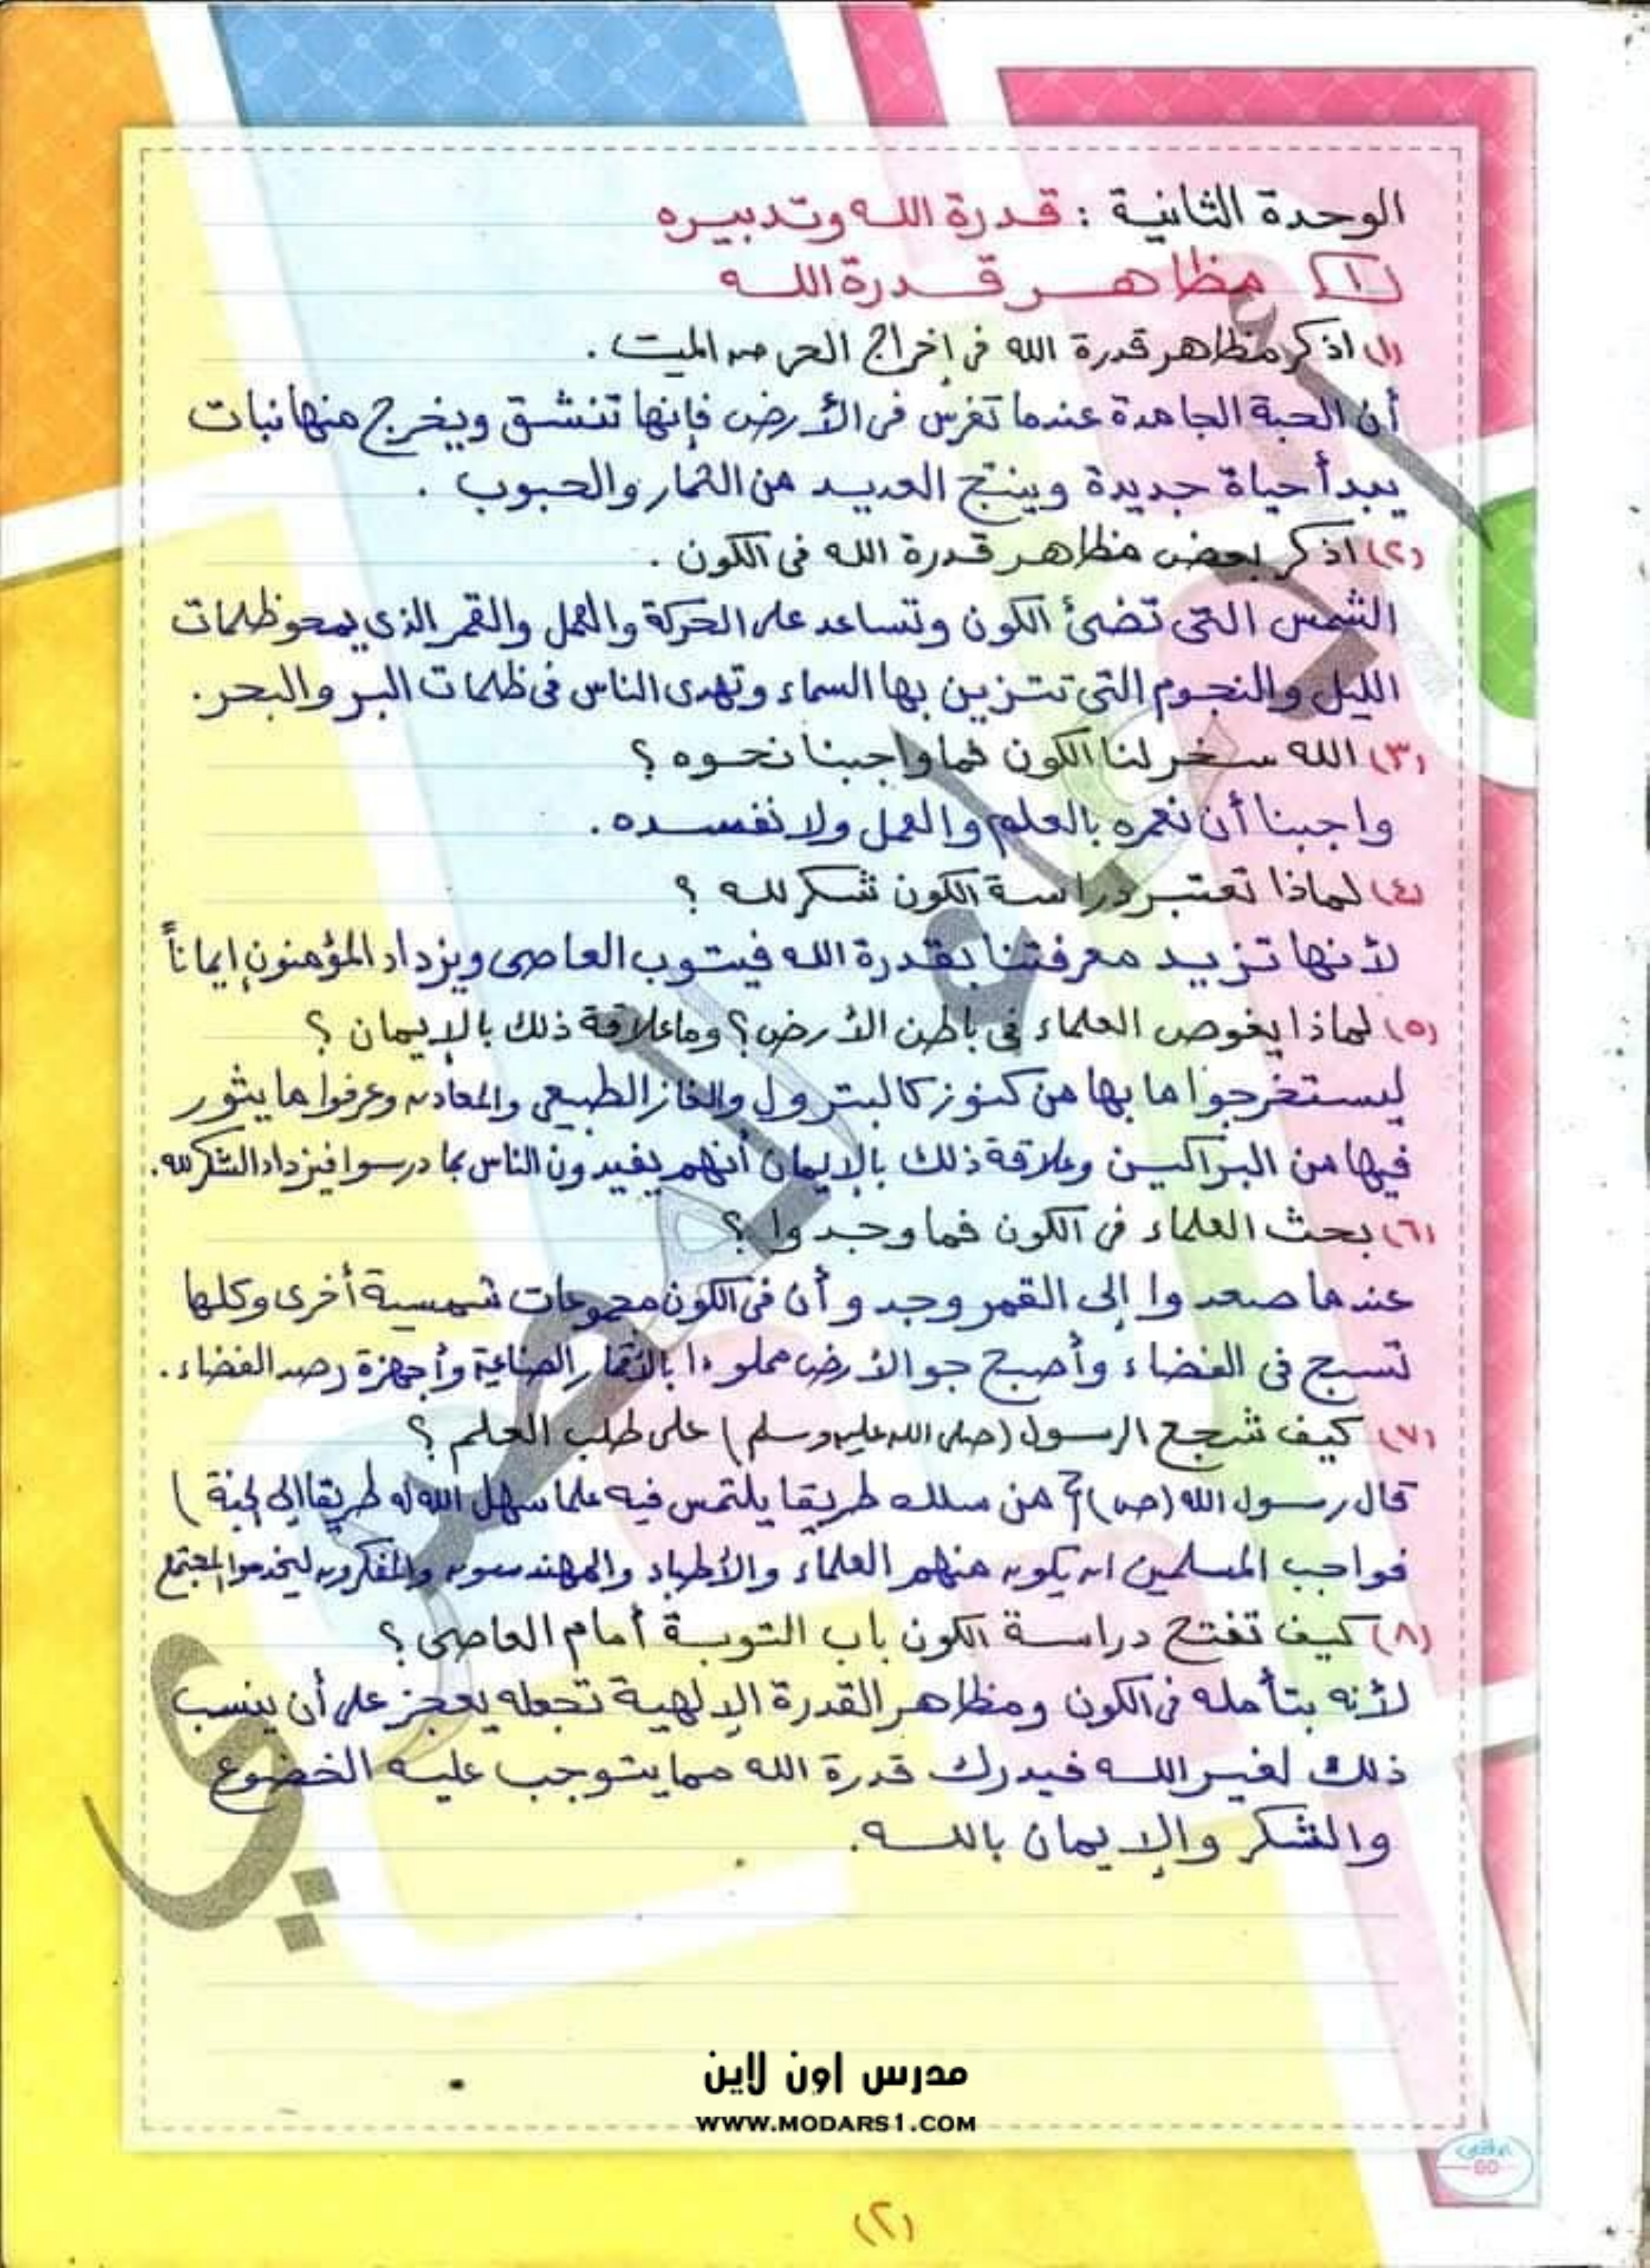 الوحدة الثانية : قدرة الله وتدبيره
١ مظاهر قدرة الله
(١) اذكر مظاهر قدرة الله في إخراج الحي من الميت .
أن الحبة الجامدة عندما تغرس في الأرض فإنها تنشق ويخرج منها نبات
يبدأ حياة جديدة وينتج العديد من الثمار والحبوب .
(٢) اذكر بعض مظاهر قدرة الله في الكون .
الشمس التي تضئ الكون وتساعد على الحركة والعمل والقمر الذي يمحو ظلمات
الليل والنجوم التي تتزين بها السماء وتهدى الناس في ظلمات البر والبحر.
(٣) الله سخر لنا الكون فما واجبنا نحوه ؟
واجبنا أن نعمره بالعلم والعمل ولا نفسده .
(٤) لماذا تعتبر دراسة الكون شكر لله ؟
لأنها تزيد معرفتنا بقدرة الله فيتوب العاصى ويزداد المؤمنون إيماناً
(٥) لماذا يغوص العلماء في باطن الأرض ؟ وما علاقة ذلك بالإيمان ؟
ليستخرجوا ما بها من كنوز كالبترول والغاز الطبيعى والمعادن وعرفوا ما يثور
فيها من البراكين وعلاقة ذلك بالإيمان أنهم يفيدون الناس بما درسوا فيزداد الشكر لله.
(٦) بحث العلماء في الكون فما وجدوا ؟
عندما صعدوا إلى القمر وجدو أن في الكون مجموعات شمسية أخرى وكلها
تسبح في الفضاء وأصبح جو الأرض مملوءا بالأقمار الصناعية وأجهزة رصد الفضاء .
(٧) كيف شجع الرسول (صلى الله عليه وسلم) على طلب العلم ؟
قال رسول الله (ص) ( من سلك طريقا يلتمس فيه علما سهل الله له طريقا إلى الجنة )
فواجب المسلمين ان يكون منهم العلماء والأطباء والمهندسون والمفكرون ليخدموا المجتمع
(٨) كيف تفتح دراسة الكون باب التوبة أمام العاصى ؟
لأنه بتأمله في الكون ومظاهر القدرة الإلهية تجعله يعجز على أن ينسب
ذلك لغير الله فيدرك قدرة الله مما يتوجب عليه الخضوع
والشكر والإيمان بالله .
مدرس اون لاين
WWW.MODARS1.COM
(٢)